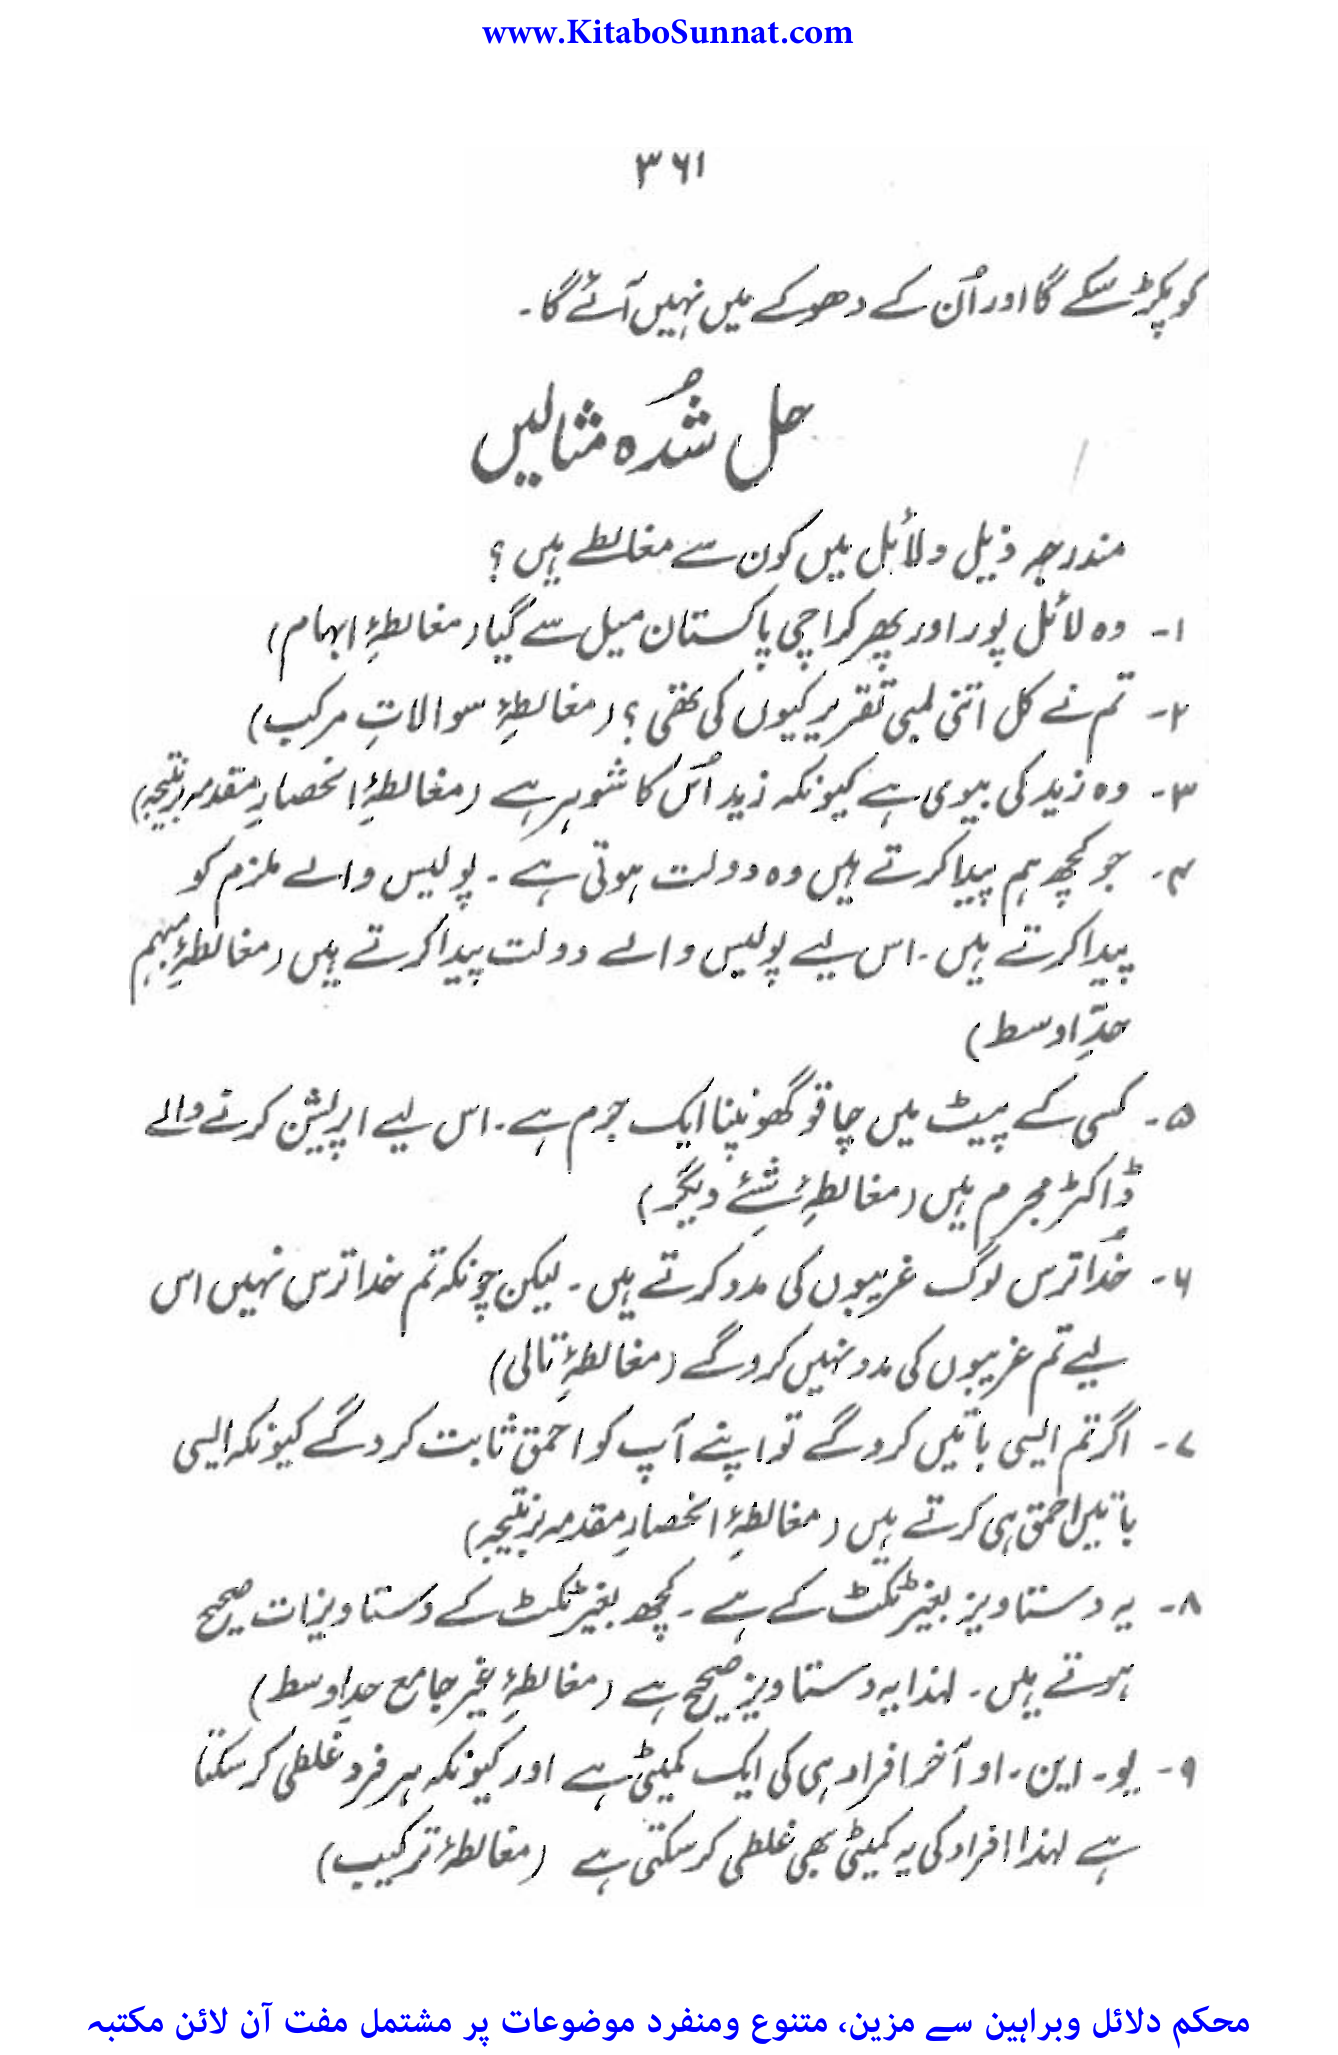 www.KitaboSunnat.com
۳۶۱
کو پکڑ سکے گا اور اُن کے دھوکے میں نہیں آئے گا۔
حل شُدہ مثالیں
مندرجہ ذیل دلائل میں کون سے مغالطے ہیں؟
۱- وہ لائل پور اور پھر کراچی پاکستان میل سے گیا (مغالطۂِ ابہام)
۲- تم نے کل اتنی لمبی تقریر کیوں کی تھی؟ (مغالطۂِ سوالاتِ مرکب)
۳- وہ زید کی بیوی ہے کیونکہ زید اُس کا شوہر ہے (مغالطۂِ انحصارِ مقدمہ بر نتیجہ)
۴- جو کچھ ہم پیدا کرتے ہیں وہ دولت ہوتی ہے۔ پولیس والے ملزم کو
پیدا کرتے ہیں۔ اس لیے پولیس والے دولت پیدا کرتے ہیں (مغالطۂِ مبہم
حدِّ اوسط)
۵- کسی کے پیٹ میں چاقو گھونپنا ایک جرم ہے۔ اس لیے اپریشن کرنے والے
ڈاکٹر مجرم ہیں (مغالطۂِ شئے دیگر)
۶- خُدا ترس لوگ غریبوں کی مدد کرتے ہیں۔ لیکن چونکہ تم خدا ترس نہیں اس
لیے تم غریبوں کی مدد نہیں کرو گے (مغالطۂِ تالی)
۷- اگر تم ایسی باتیں کرو گے تو اپنے آپ کو احمق ثابت کرو گے کیونکہ ایسی
باتیں احمق ہی کرتے ہیں (مغالطۂِ انحصارِ مقدمہ بر نتیجہ)
۸- یہ دستاویز بغیر ٹکٹ کے ہے۔ کچھ بغیر ٹکٹ کے دستاویزات صحیح
ہوتے ہیں۔ لہذا یہ دستاویز صحیح ہے (مغالطۂِ غیر جامع حدِ اوسط)
۹- یو۔ این۔ او آخر افراد ہی کی ایک کمیٹی ہے اور کیونکہ ہر فرد غلطی کر سکتا
ہے لہذا افراد کی یہ کمیٹی بھی غلطی کر سکتی ہے (مغالطۂ ترکیب)
محکم دلائل وبراہین سے مزین، متنوع ومنفرد موضوعات پر مشتمل مفت آن لائن مکتبہ